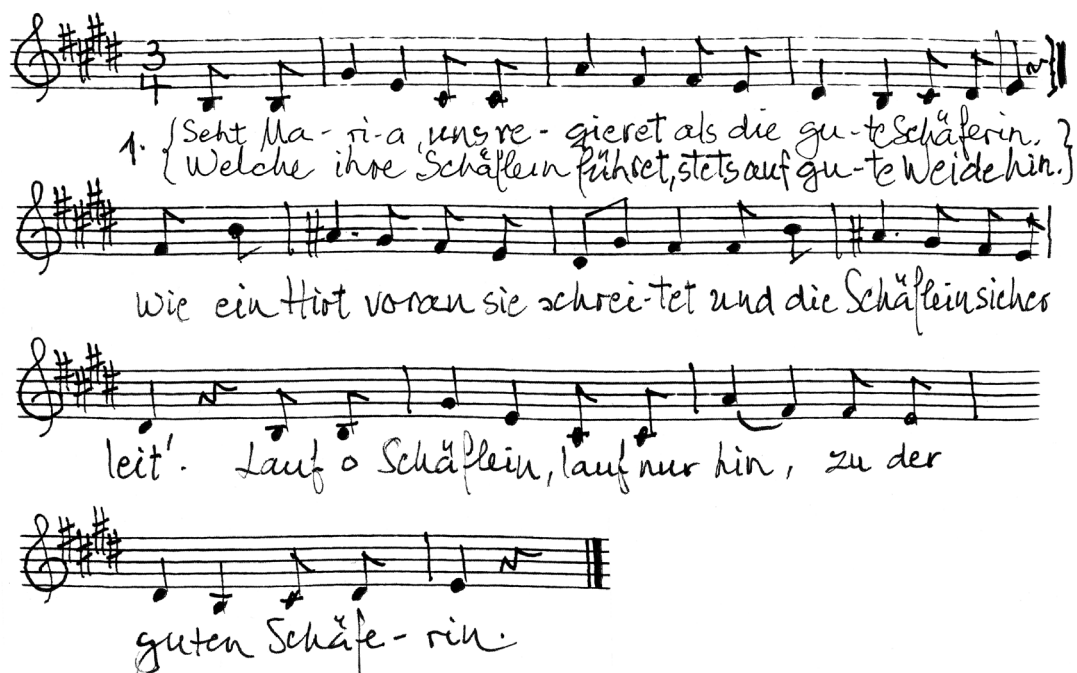 3
4
1. {Seht Ma-ri-a, uns re-gieret als die gu-te Schäferin.
{Welche ihre Schäflein führet, stets auf gu-te Weide hin.}
wie ein Hirt voran sie schrei-tet und die Schäflein sicher
leit'. Lauf o Schäflein, lauf nur hin, zu der
guten Schäfe-rin.